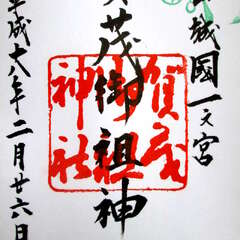 城國一之宮
茂御祖神
平成十八年二月廿六日
賀茂
御祖
神社